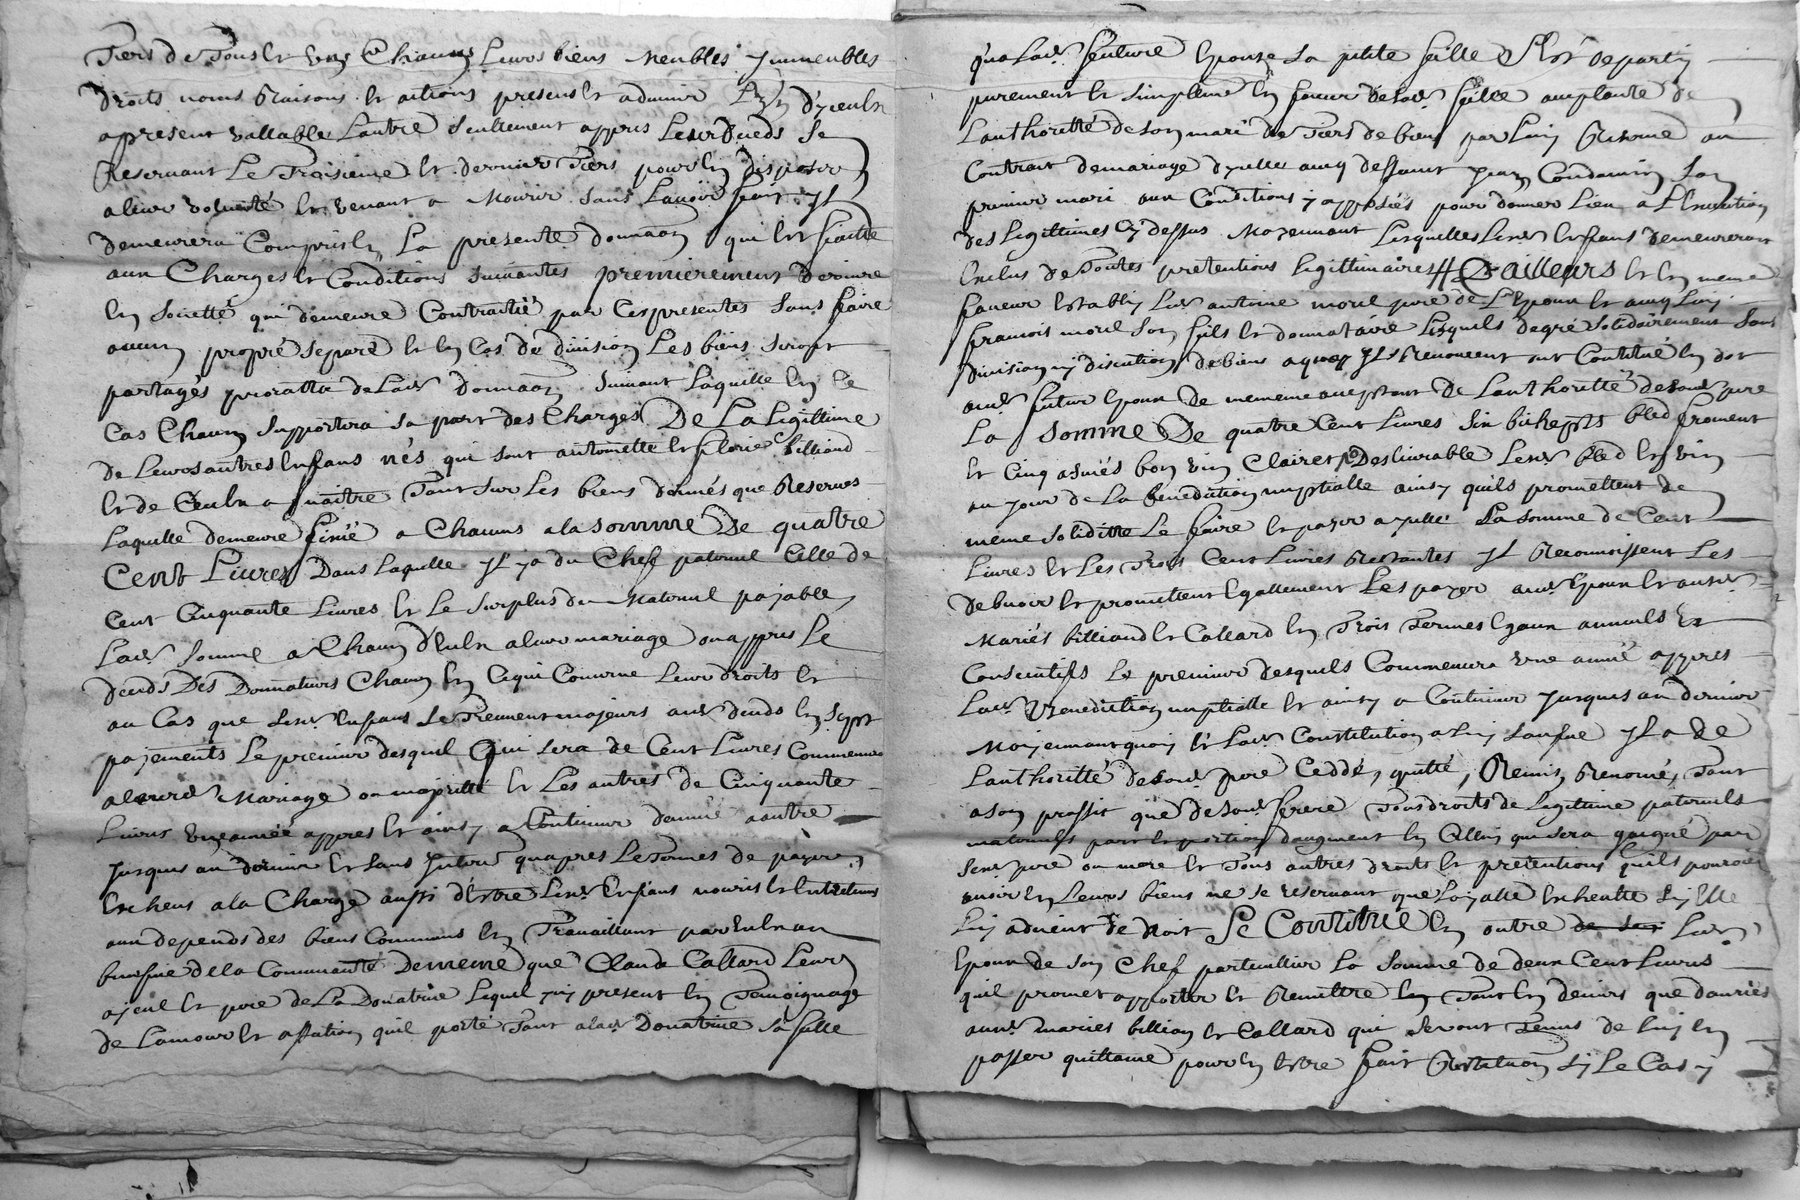 Tiers de Tous et uns Chacuns Leurs biens Meubles Jmmeubles
droits noms Raisons et actions presens et advenir d'yceulx
apresent vallable Lautre seullement appres Leur deceds Se
Reservant Le Troisieme et dernier Tiers pour en disposer
a leur volonté et venant a Mourir sans Lavoir fait Jl
demeurera Compris en La presente donnaon qui est faitte
aux Charges et Conditions suivantes premierement de vivre
en sosietté qui demeure Contractéé par Ces presentes sans faire
aucun propre separé et en Cas de division Les biens seront
partagés proratta de Lad donnaon suivant Laquelle en Ce
Cas Chacun supportera sa part des Charges De La Legittime
de Leurs autres Enfans nés qui sont antoinette et florie billiand
et de Ceulx a naitre Tant sur Les biens donnés que Reservés
Laquelle demeure fixéé a Chacuns a la somme De quatre
Cent Livres Dans Laquelle Jl y a du Chef paternel Celle de
Cent Cinquante Livres et Le surplus du Maternel payable
Lad somme a Chacun d'eulx a leur mariage ou appres Le
deceds Des Donnateurs Chacun en Ce qui Concerne Leurs droits et
au Cas que Leurs Enfans se Treuvent majeurs aux deceds en sept
payements Le premier desquel Qui sera de Cent Livres Commencera
a leurd Mariage ou majoritté et Les autres de Cinquante
Livres une annéé appres et ainsy a Continuer danneé a autre
Jusques au dernier et sans Jnterest quapres Le Termes de payer
Escheus a la Charge aussi d'Estre Leurs Enfans nouris et Entretenus
aux depends des biens Communs en Travaillant par eulx au
benefice de la Communauté De meme que Claude Callard Leur
ayeul et pere de La Donatrice Lequel jcy present en Temoignage
de Lamour et affection quil porte Tant a lad Donatrice sa fille
qua Lad future Epouse sa petite fille s'est departy
purement et simplemt en faveur de sad fille acceptante de
Lauthoritté de son mari du Tiers de biens par Luy Reservé au
Contrait de mariage dycelle avec deffunt Jean Condamin son
premier mari aux Conditions y apposéés pour donner Lieu a LExecution
des Legittimes Cy dessus Moyennant Lesquelles Leurs Enfans demeureront
Exclus de Toutes pretentions Legittimaires // D'ailleurs et en meme
faveur Establÿ Led antoine morel pere de L'Epoux et avec Luy
francois morel son fils et donnataire Lesquels de gré solidairement sans
division ny discution de biens a quoy Jls Renoncent ont Constitué en dot
aud futur Epoux de meme acceptant de Lauthoritté de son pere
La somme De quatre Cent Livres six bichepts bled froment
et Cinq asnéés bon vin Clairet Deslivrable Lesd bled et vin
au jour de La benediction nuptialle ainsy quils promettent de
meme soliditté Le faire et payer a jcelle La somme de Cent
Livres et Les Trois Cent Livres Restantes Jl Reconnoissent Les
debvoir et promettent Egallement Les payer aud Epoux et auxd
Mariés billiand et Callard en Trois Termes Egaux annuels Et
Consecutifs Le premier desquels Commencera une anneé appres
Lad Benediction nuptialle et ainsy a Continuer Jusques au dernier
Moyennant quoy et Lad Constitution a Luy faitte Jl a de
Lauthoritté de sond pere Ceddé, quitté, Remis, Renoncé, Tant
a son proffit que de sond frere Tous droits de Legittime paternels
maternels part et portion daugment en Celluy qui sera gaigné par
sesd pere ou mere et Tous autres droits et pretentions quils pouroit
avoir en Leurs biens ne se reservant que Loyalle Escheutte sy Elle
Luy advient de droit Se Constitue en outre Led
Epoux de son Chef particullier La somme de deux Cent Livres
quil promet apporter et Remettre Tant en deniers que danrées
auxd mariés billian et Callard qui seront Tenus de Luy en
passer quittance pour en Estre fait Restitution sy Le Cas y